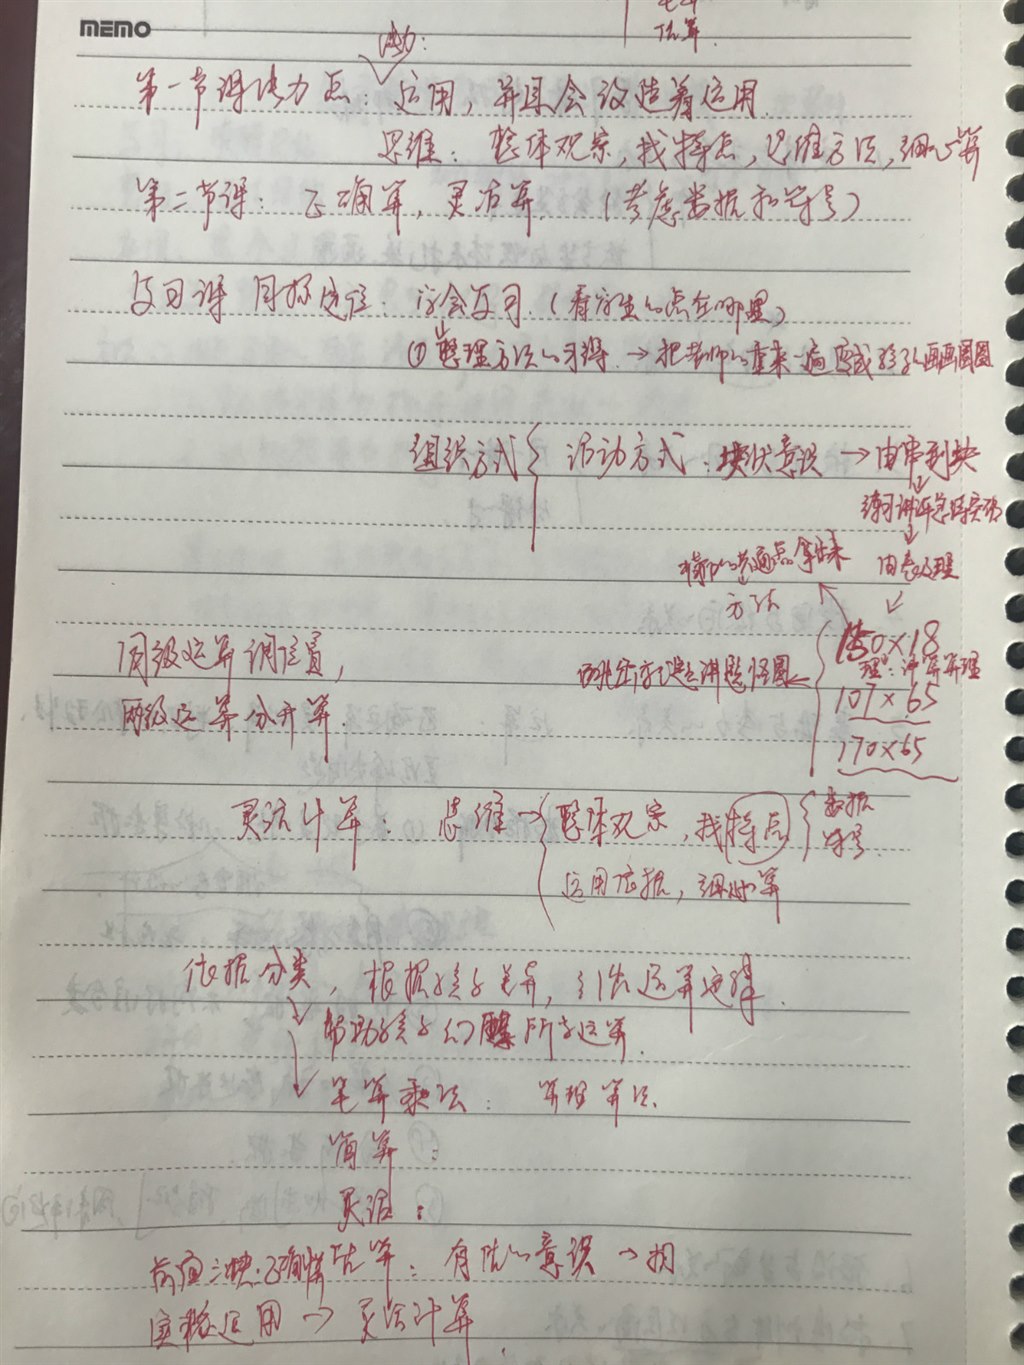 memo
估算.
第一节课 力点：运用，并且会改造着运用
思维：整体观察，找特点，思维方法，细心算
第二节课：正确算，灵活算.（考虑数据和符号）
复习课 目标定位：学会复习.（看学生的点在哪里）
① 整理方法的习得. → 把老师的重来一遍 变成 孩子的画画圈圈
组织方式 活动方式：块状意识 → 由串到块
练习讲评
共通点拿出来
方法
由表及理
同级运算调位置，
150×18
理：讲算算理
两级运算分开算.
107×65
170×65
灵活计算：思维→ 整体观察，找特点 数据 符号.
运用依据，细心算
依据分类，根据孩子差异，引出运算定律.
帮助孩子 所学运算.
笔算乘法：算理算法.
简算：
灵活：
正确 估算：有估的意识 →
实际运用 → 灵活计算.